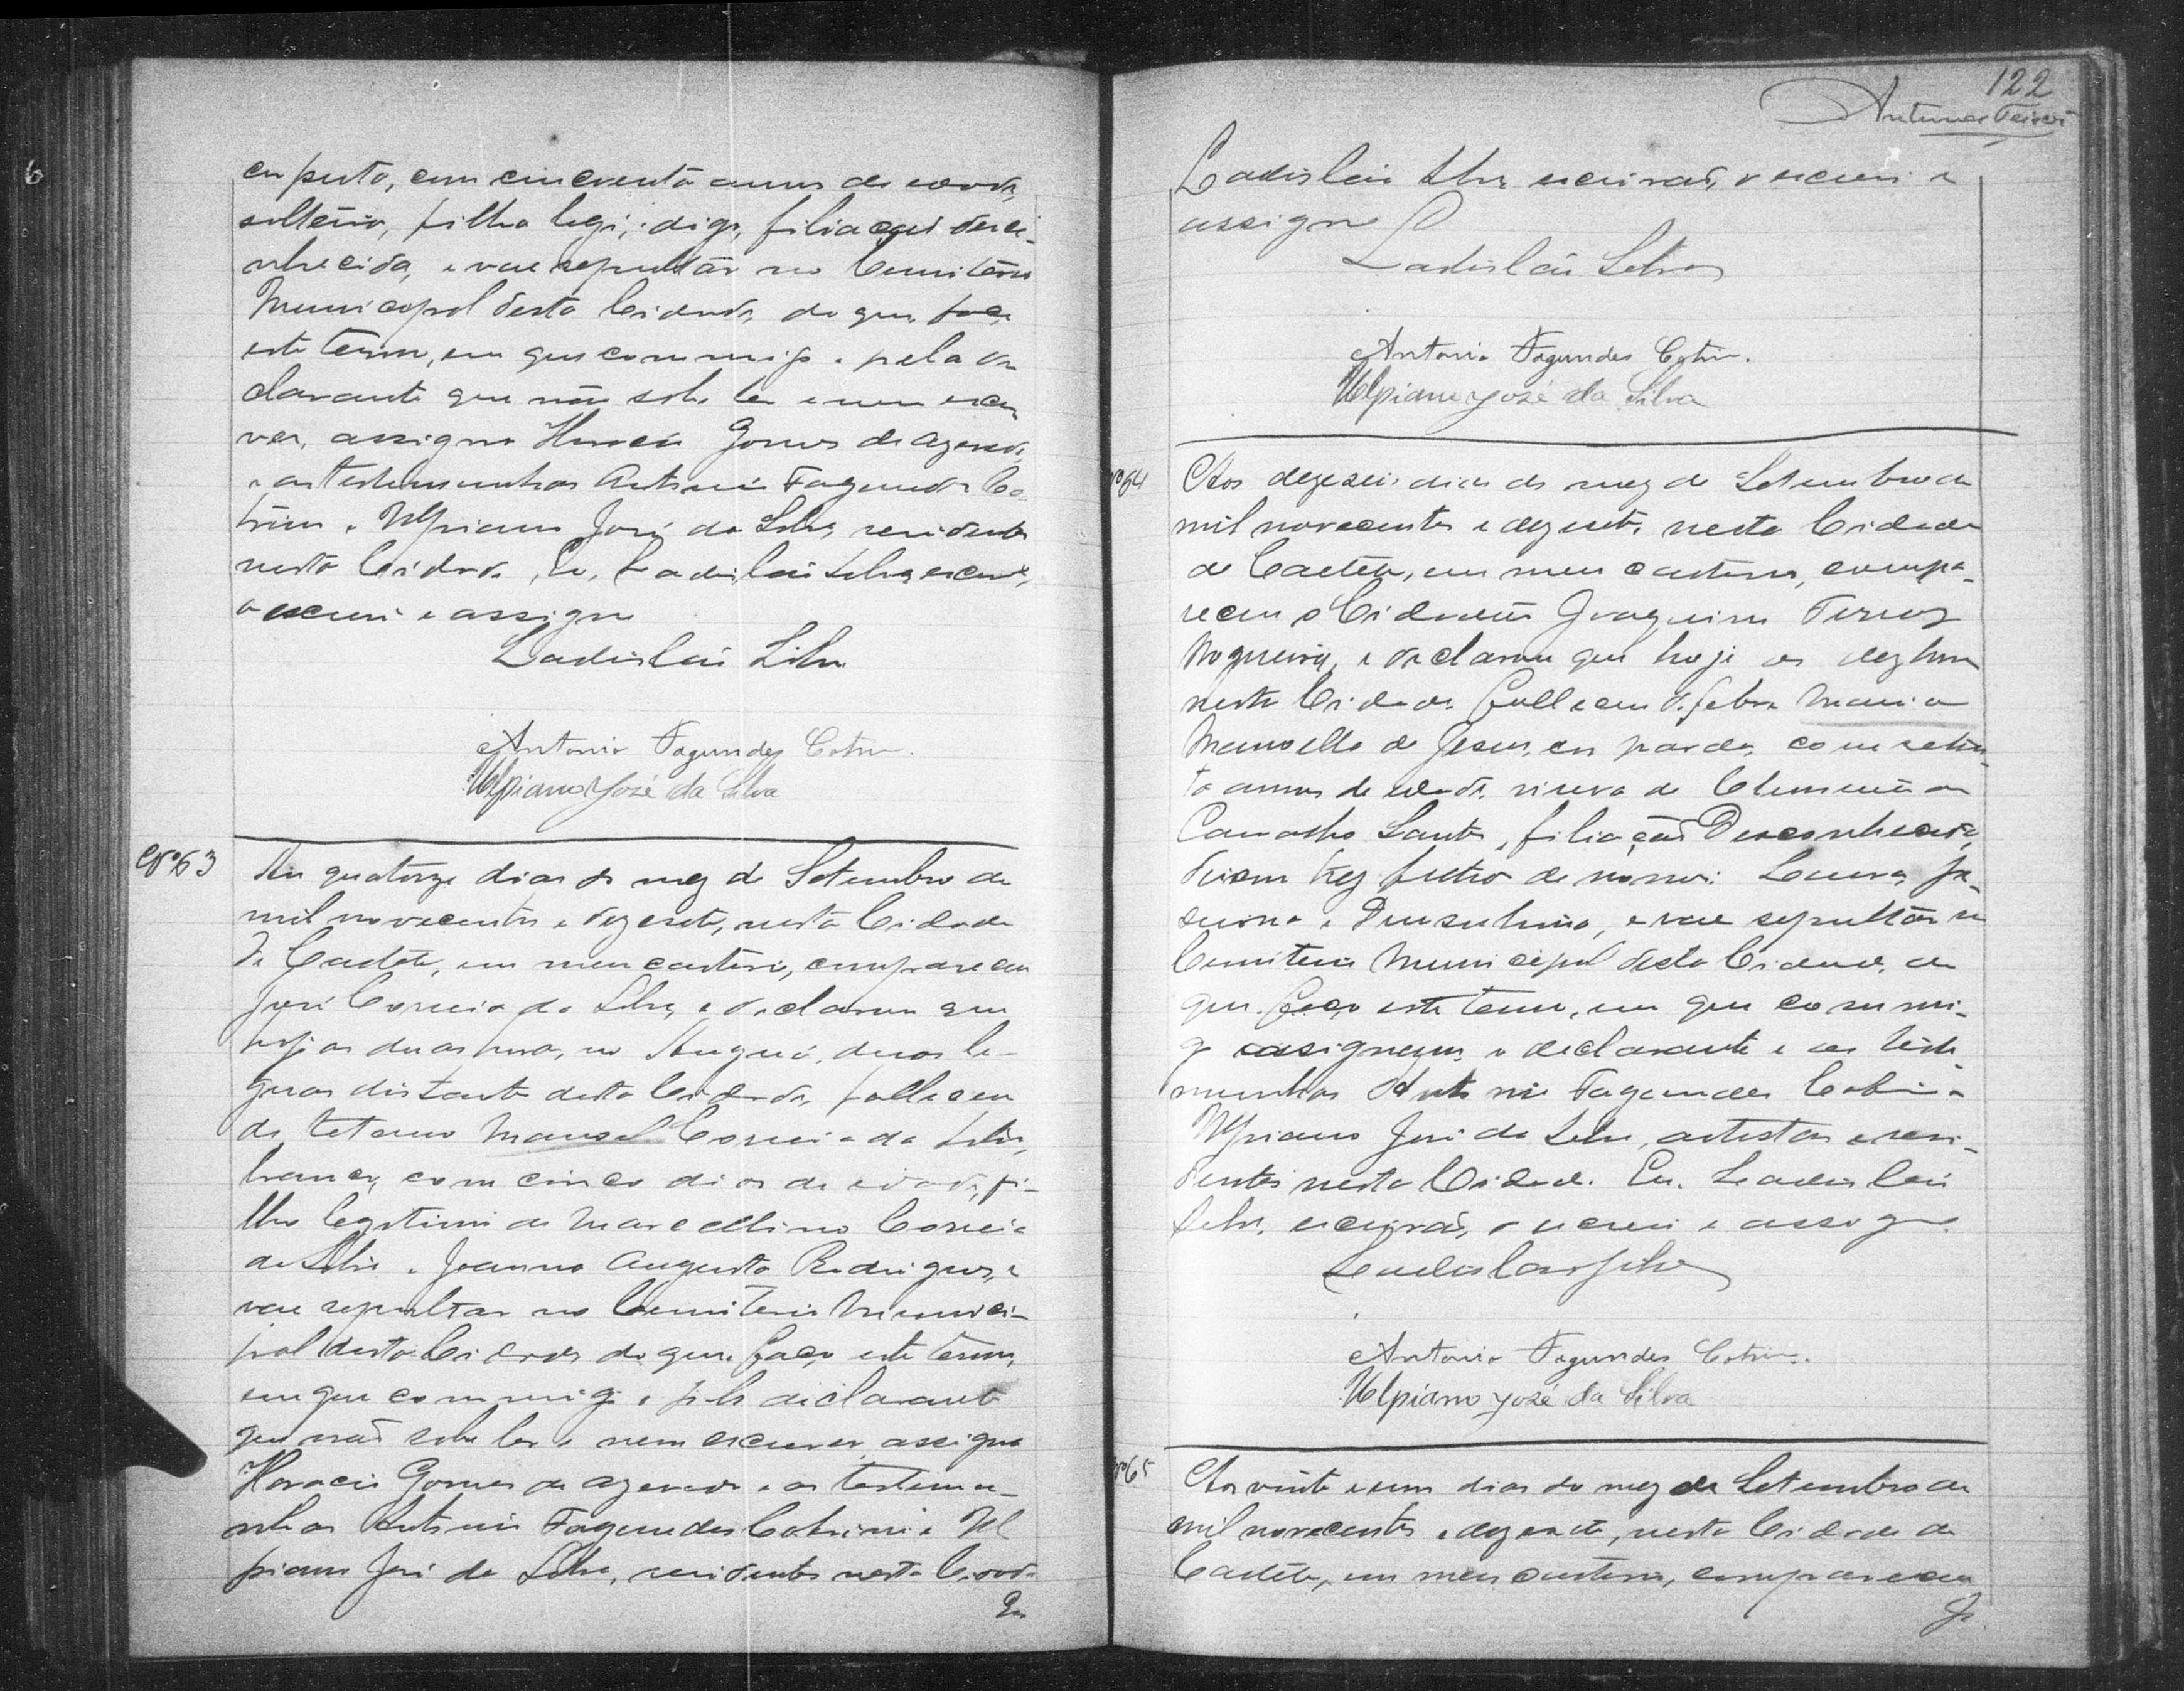 côr preta, com cincoenta annos de edade,
solteiro, filho legi, digo, filiação desco-
nhecida, e vae sepultar no Cemiterio
Municipal desta Cidade, do que faço
este termo, em que commigo e pela de
clarante que não sabe ler e nem escre
ver, assigna Horacio Gomes de Azevedo,
e as testemunhas Antonio Fagundes Co
trim e Ulpiano José da Silva, residentes
nesta Cidade. Eu, Ladisláu Silva, escrivão,
o escrevi e assigno
Ladisláu Silva
Antonio Fagundes Cotrim.
Ulpiano José da Silva
Nº 63
Aos quatorze dias do mez de Setembro de
mil novecentos e dezesete, nesta Cidade
de Caeteté, em meu cartorio, compareceu
José Correia da Silva, e declarou que
hoje as duas horas, no duas le-
guas distante desta Cidade, falleceu
de tetano Manoel Correia da Silva,
branco, com cinco dias de edade, fi-
lho legitimo de Marcellino Correia
da Silva e Joanna Augusta Rodrigues, e
vae sepultar no Cemiterio Munici-
pal desta Cidade do que faço este termo,
em que commigo e pelo declarante
que não sabe ler e nem escrever, assigna
Horacio Gomes de Azevedo e as testemu-
nhas Antonio Fagundes Cotrim e Ul
piano José da Silva, residentes nesta Cidade
Eu
122
Antunes
Ladisláu Silva, escrivão, o escrevi e
assigno
Ladisláu Silva
Antonio Fagundes Cotrim.
Ulpiano José da Silva
Nº 64
Aos dezeseis dias do mez de Setembro de
mil novecentos e dezesete, nesta Cidade
de Caeteté, em meu cartorio, compa-
receu o Cidadão Joaquim
Nogueira, e declarou que hoje as dez horas
nesta Cidade falleceu de febre Maria
de Jesus, côr parda, com seten-
ta annos de edade, viuva de
Santos, filiação Desconhecida,
deixou trez filhos de nomes:
e vae sepultár no
Cemiterio Municipal desta Cidade, do
que faço este termo, em que commi-
go assignam o declarante e as teste
munhas Antonio Fagundes Cotrim e
Ulpiano José da Silva, artistas e resi-
dentes nesta Cidade. Eu, Ladisláu
Silva, escrivão, o escrevi e assigno
Ladislau Silva
Antonio Fagundes Cotrim.
Ulpiano José da Silva
Nº 65
Aos vinte e um dias do mez de Setembro de
mil novecentos e dezesete, nesta Cidade de
Caeteté, em meu cartorio, compareceu